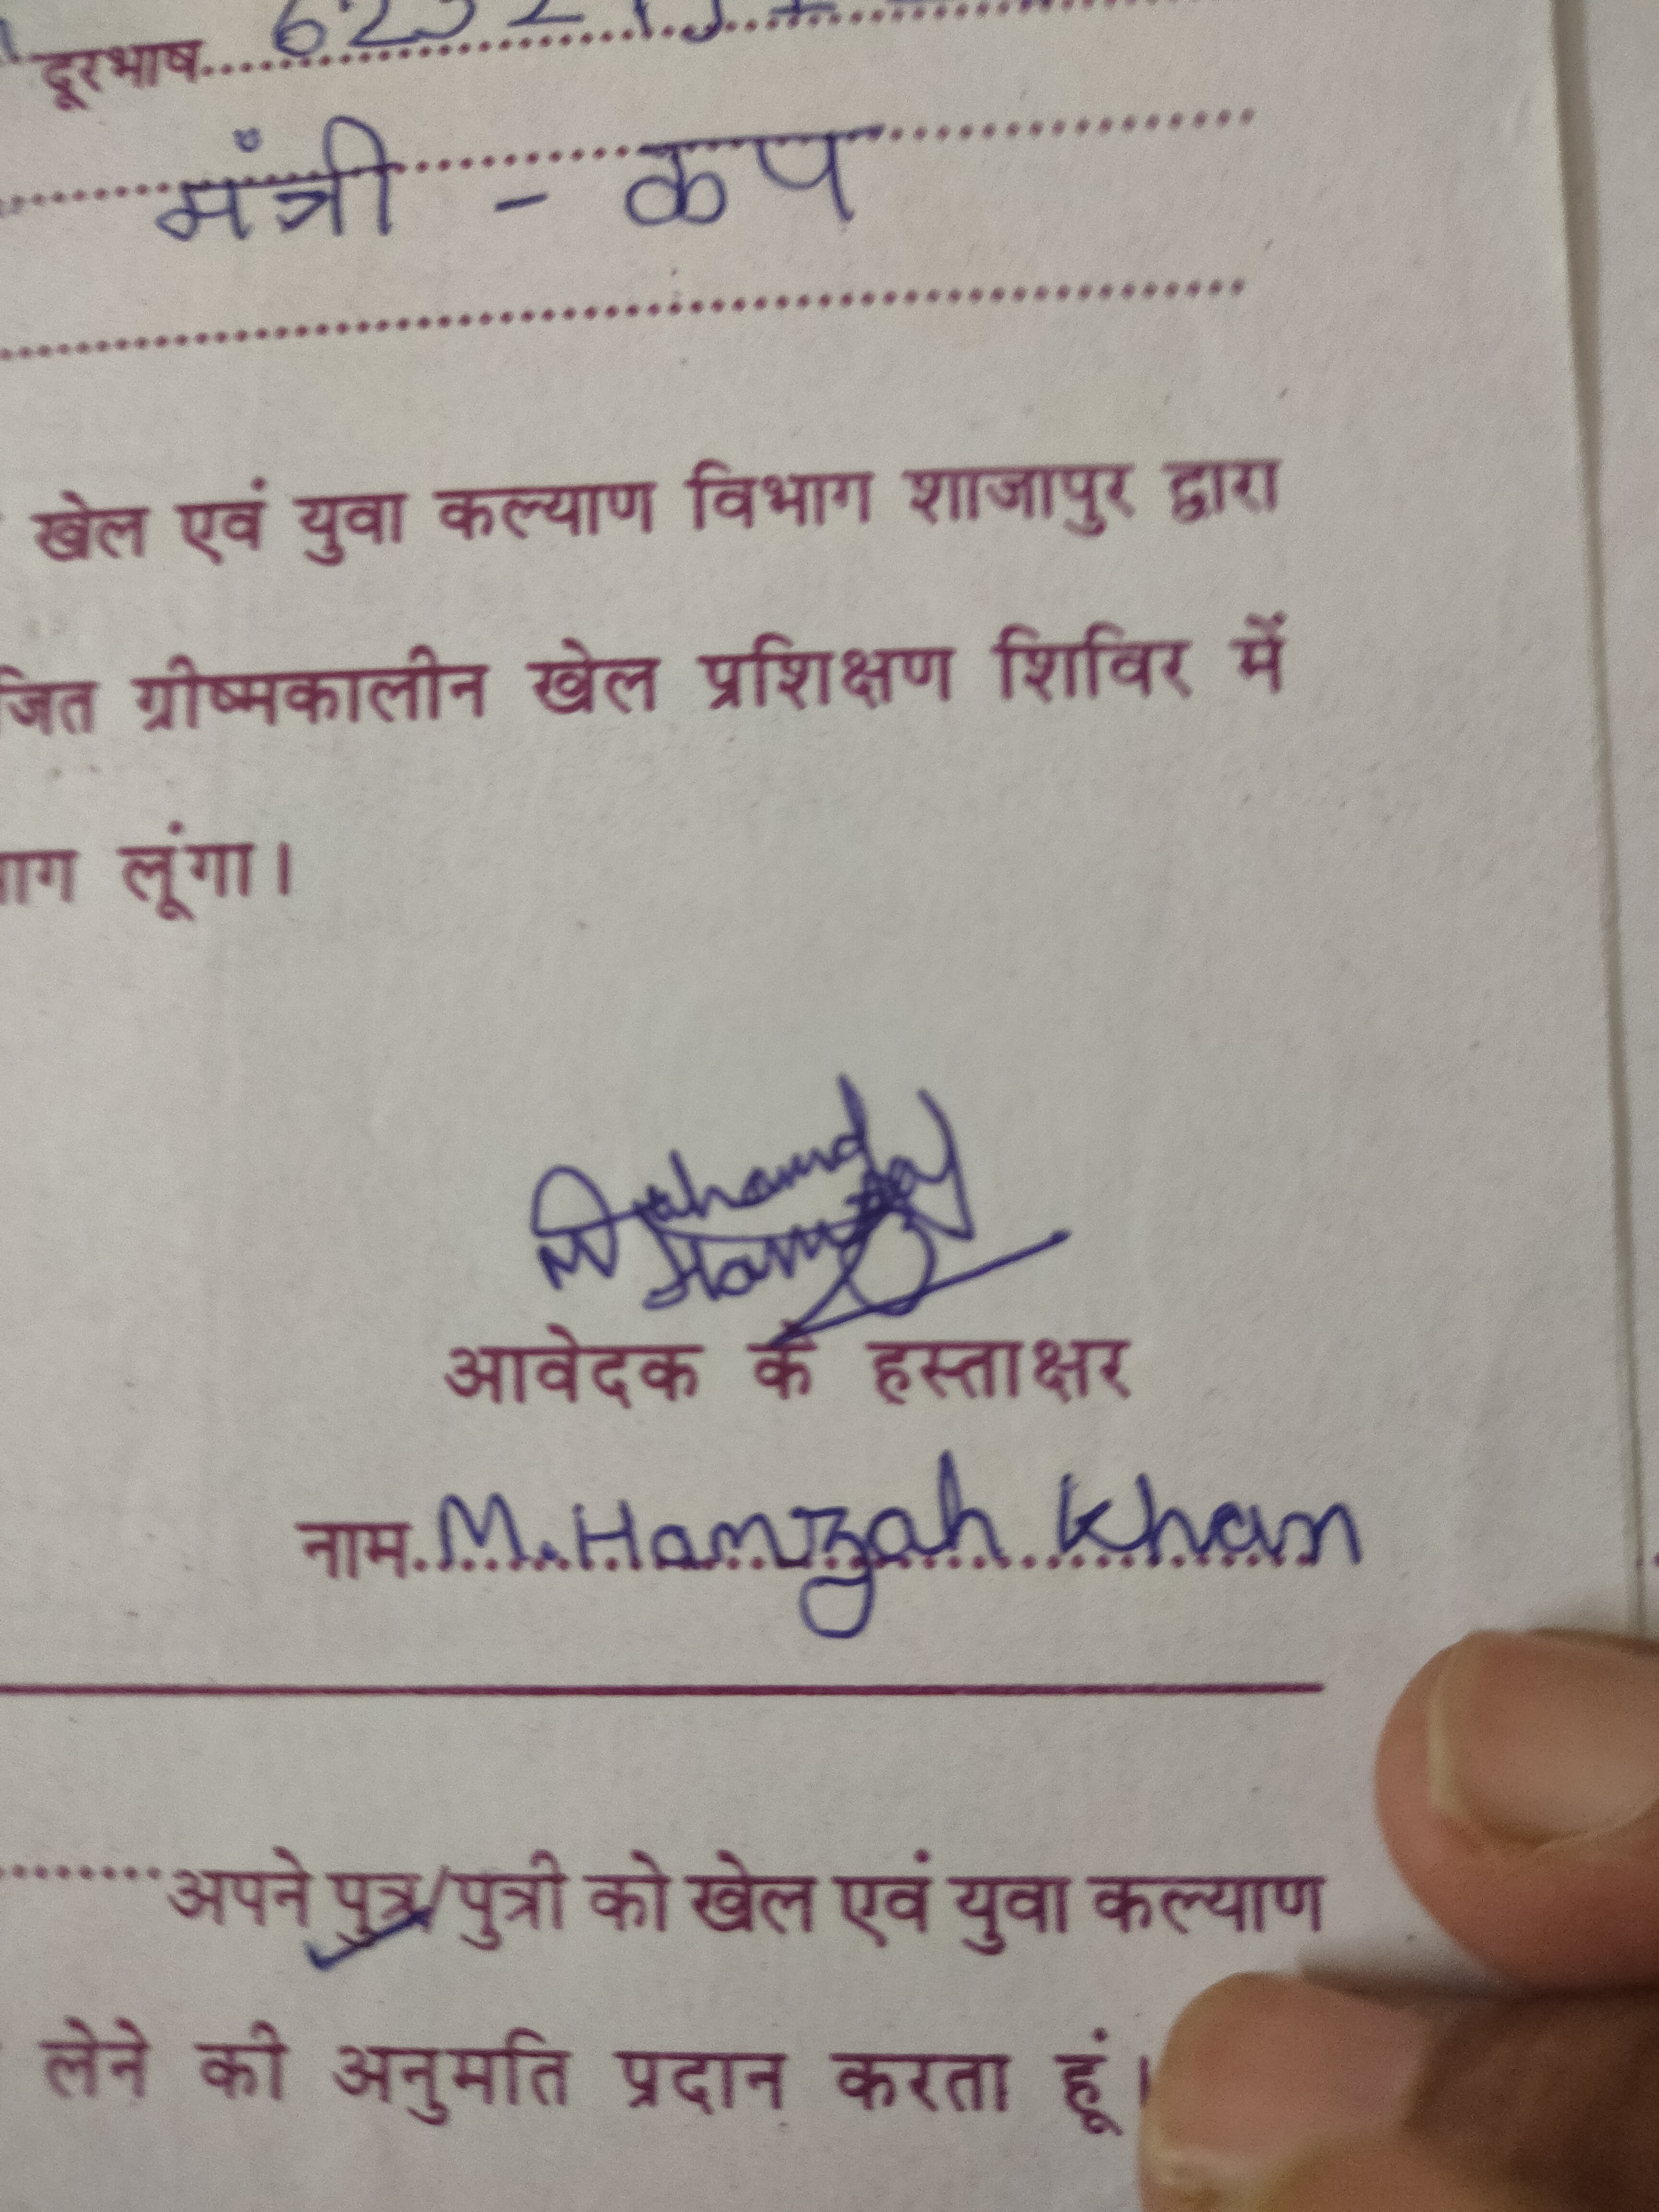 दूरभाष
मंत्री - कप
खेल एवं युवा कल्याण विभाग शाजापुर द्वारा
जित ग्रीष्मकालीन खेल प्रशिक्षण शिविर में
ाग लूंगा।
आवेदक के हस्ताक्षर
नाम M. Hamzah Khan
अपने पुत्र/पुत्री को खेल एवं युवा कल्याण
लेने की अनुमति प्रदान करता हूं।